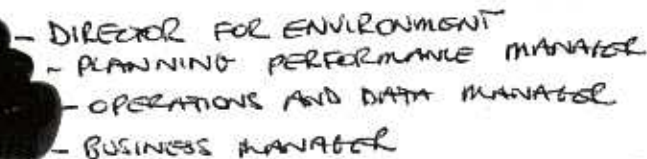 - DIRECTOR FOR ENVIRONMENT
- PLANNING PERFORMANCE MANAGER
- OPERATIONS AND DATA MANAGER
- BUSINESS MANAGER